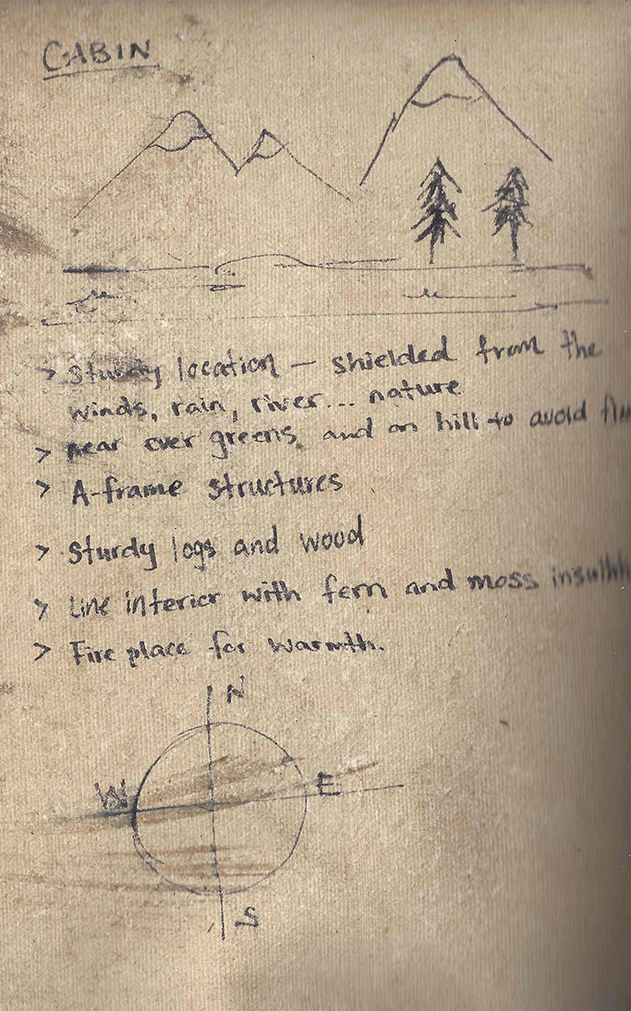 CABIN
> Sturdy location – shielded from the
winds, rain, river... nature
> near ever greens and on hill to avoid
> A-frame structures
> Sturdy logs and wood
> Line interior with fern and moss
> Fire place for warmth.
N
W E
S